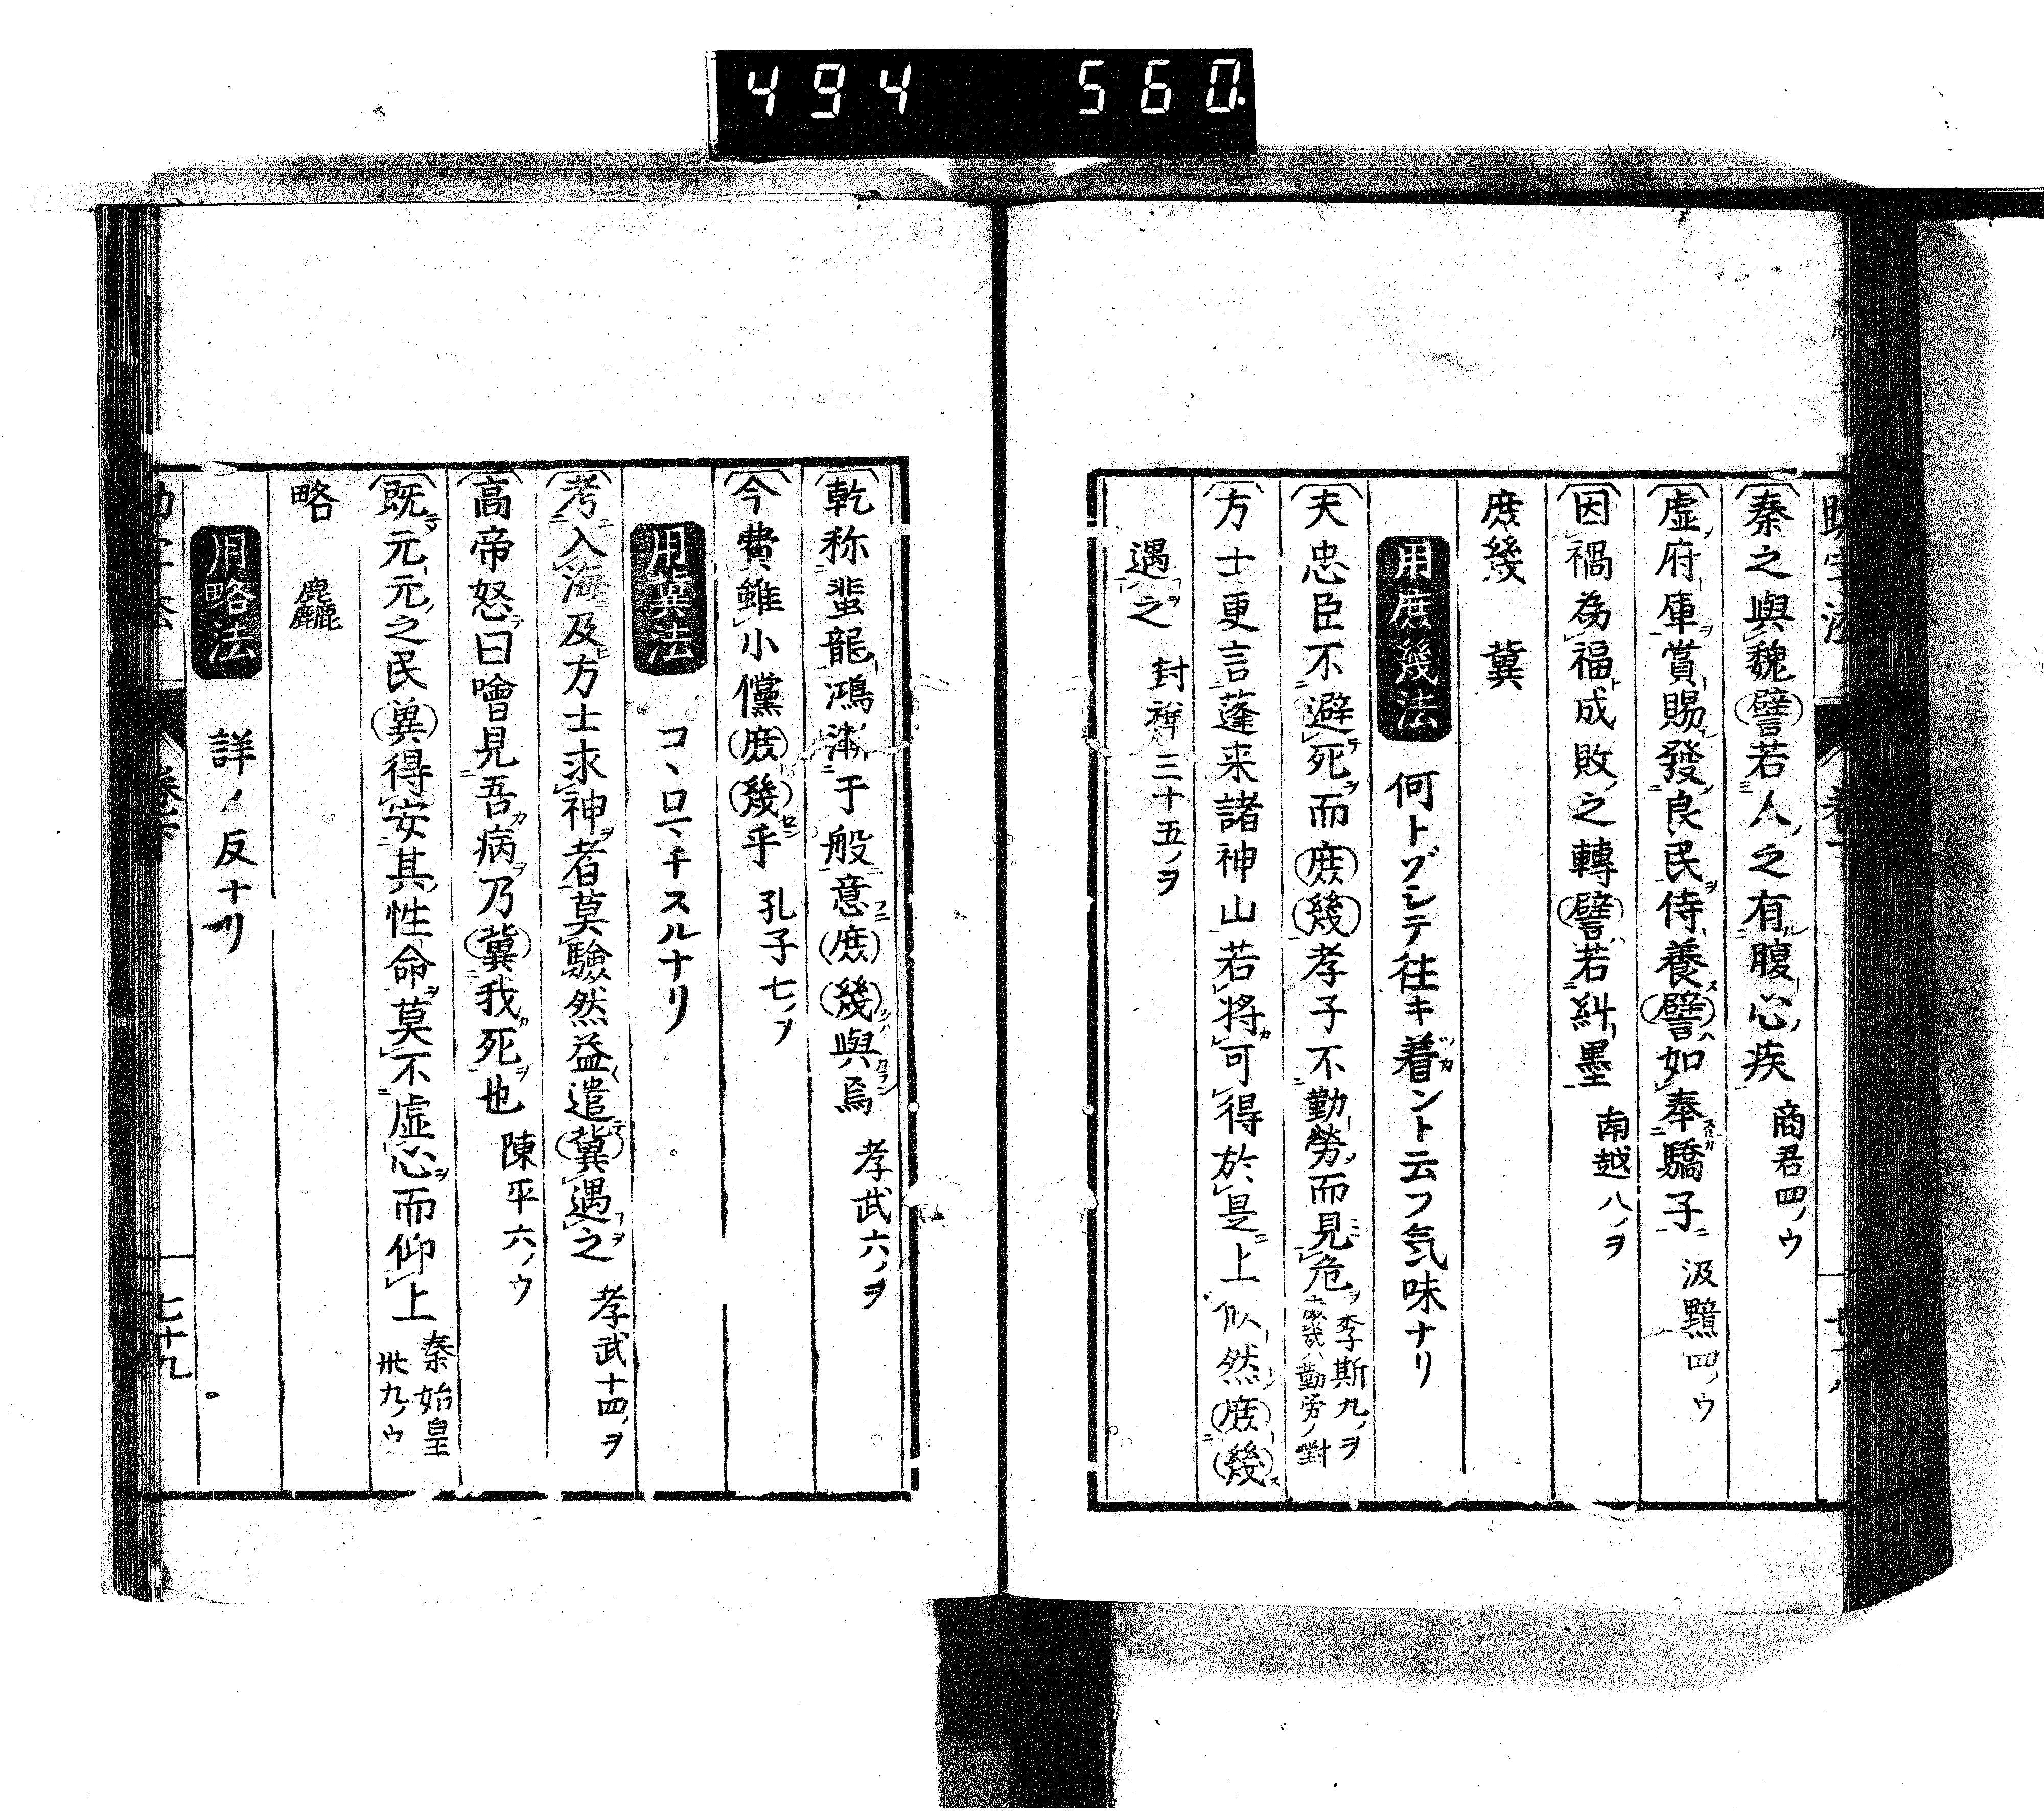 494 560
秦之與魏譬若人之有腹心疾 商君四ノウ
虚府庫賞賜發良民侍養譬如奉驕子 汲黯四ノウ
因禍為福成敗之轉譬若糾墨 南越八ノヲ
庶幾 冀
用庶幾法 何トゾシテ往キ着ント云フ気味ナリ
夫忠臣不避死而庶幾孝子不勤勞而見危 李斯九ノヲ 勤労ノ對
方士更言蓬来諸神山若將可得於是上似然庶幾
遇之 封禅三十五ノヲ
乾称蜚龍鴻漸于般意庶幾與焉 孝武六ノヲ
今費雖小儻庶幾乎 孔子七ノヲ
用冀法 コヽロマチスルナリ
考入海及方士求神者莫驗然益遣冀遇之 孝武十四ノヲ
高帝怒曰噲見吾病乃冀我死也 陳平六ノウ
既元元之民冀得安其性命莫不虚心而仰上 秦始皇卅九ノウ
略 麤
用略法 詳ノ反ナリ
七十九